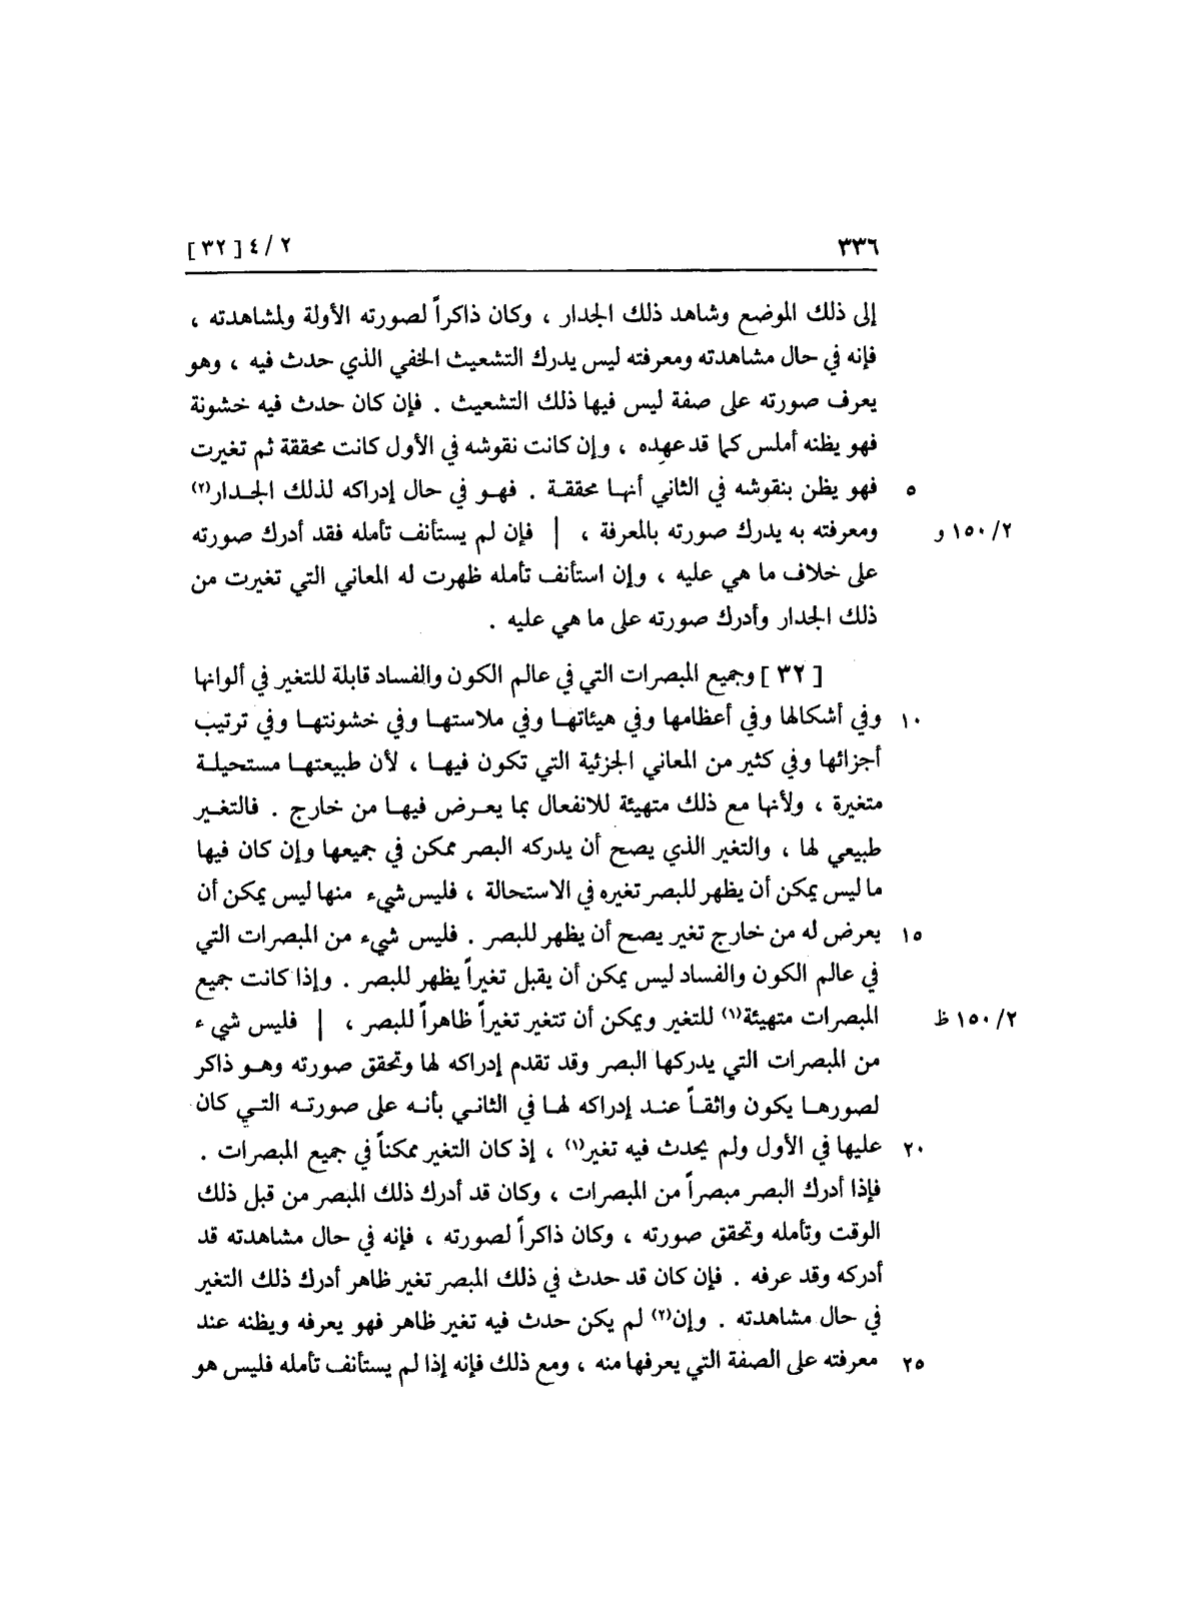 ٣٣٦ ٢ / ٤ [ ٣٢ ]
إلى ذلك الموضع وشاهد ذلك الجدار ، وكان ذاكراً لصورته الأولة ولمشاهدته ،
فإنه في حال مشاهدته ومعرفته ليس يدرك التشعيث الخفي الذي حدث فيه ، وهو
يعرف صورته على صفة ليس فيها ذلك التشعيث . فإن كان حدث فيه خشونة
فهو يظنه أملس كما قد عهِده ، وإن كانت نقوشه في الأول كانت محققة ثم تغيرت
٥ فهو يظن بنقوشه في الثاني أنها محققة . فهو في حال إدراكه لذلك الجدار(٢)
٢/ ١٥٠ و ومعرفته به يدرك صورته بالمعرفة ، | فإن لم يستأنف تأمله فقد أدرك صورته
على خلاف ما هي عليه ، وإن استأنف تأمله ظهرت له المعاني التي تغيرت من
ذلك الجدار وأدرك صورته على ما هي عليه .
[ ٣٢ ] وجميع المبصرات التي في عالم الكون والفساد قابلة للتغير في ألوانها
١٠ وفي أشكالها وفي أعظامها وفي هيئاتها وفي ملاستها وفي خشونتها وفي ترتيب
أجزائها وفي كثير من المعاني الجزئية التي تكون فيها ، لأن طبيعتها مستحيلة
متغيرة ، ولأنها مع ذلك متهيئة للانفعال بما يعرض فيها من خارج . فالتغير
طبيعي لها ، والتغير الذي يصح أن يدركه البصر ممكن في جميعها وإن كان فيها
ما ليس يمكن أن يظهر للبصر تغيره في الاستحالة ، فليس شيء منها ليس يمكن أن
١٥ يعرض له من خارج تغير يصح أن يظهر للبصر . فليس شيء من المبصرات التي
في عالم الكون والفساد ليس يمكن أن يقبل تغيراً يظهر للبصر . وإذا كانت جميع
٢/ ١٥٠ ظ المبصرات متهيئة(١) للتغير ويمكن أن تتغير تغيراً ظاهراً للبصر ، | فليس شيء
من المبصرات التي يدركها البصر وقد تقدم إدراكه لها وتحقق صورته وهو ذاكر
لصورها يكون واثقاً عند إدراكه لها في الثاني بأنه على صورته التي كان
٢٠ عليها في الأول ولم يحدث فيه تغير(١) ، إذ كان التغير ممكناً في جميع المبصرات .
فإذا أدرك البصر مبصراً من المبصرات ، وكان قد أدرك ذلك المبصر من قبل ذلك
الوقت وتأمله وتحقق صورته ، وكان ذاكراً لصورته ، فإنه في حال مشاهدته قد
أدركه وقد عرفه . فإن كان قد حدث في ذلك المبصر تغير ظاهر أدرك ذلك التغير
في حال مشاهدته . وإن(٢) لم يكن حدث فيه تغير ظاهر فهو يعرفه ويظنه عند
٢٥ معرفته على الصفة التي يعرفها منه ، ومع ذلك فإنه إذا لم يستأنف تأمله فليس هو